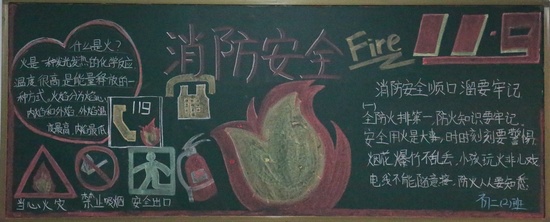 消防安全
Fire
11.9
什么是火?
火是一种发光发热的化学反应
温度很高是能量释放的一
种方式。火焰分为焰心
内焰和外焰、外焰温
度最高,内焰最低
119
当心火灾
禁止吸烟
安全出口
消防安全顺口溜要牢记
(一)
全防火排第一,防火知识要牢记。
安全用火是大事,时时刻刻要警惕。
烟花爆竹不乱去,小孩玩火非儿戏
电线不能随意接,防火人人要知悉
初二(2)班